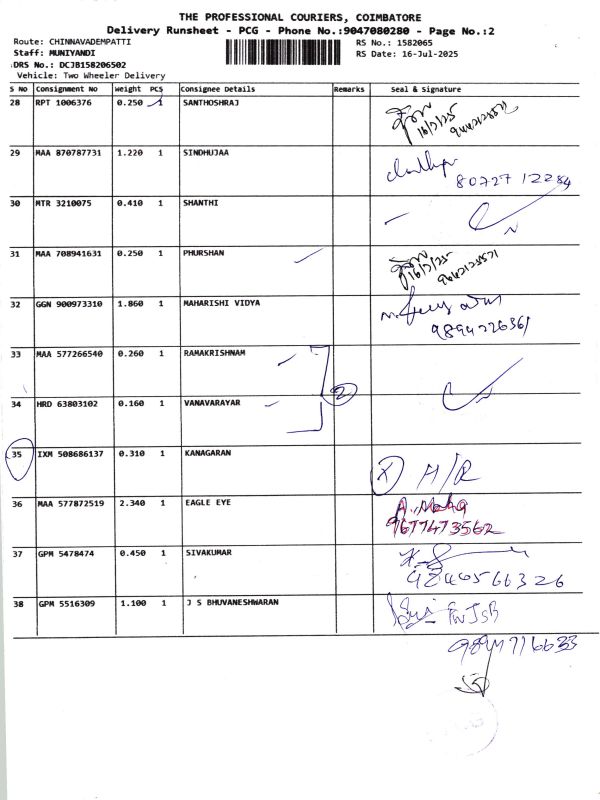 THE PROFESSIONAL COURIERS, COIMBATORE
Delivery Runsheet - PCG - Phone No.:9047080280 - Page No.:2
Route: CHINNAVADEMPATTI RS No.: 1582065
Staff: MUNIYANDI RS Date: 16-Jul-2025
DRS No.: DCJB158206502
Vehicle: Two Wheeler Delivery
S No Consignment No Weight PCS Consignee Details Remarks Seal & Signature
28 RPT 1006376 0.250 1 SANTHOSHRAJ
16/7/25
29 MAA 870787731 1.220 1 SINDHUJAA
80727 12284
30 MTR 3210075 0.410 1 SHANTHI
31 MAA 708941631 0.250 1 PHURSHAN
16/7/25
32 GGN 900973310 1.860 1 MAHARISHI VIDYA
9894226361
33 MAA 577266540 0.260 1 RAMAKRISHNAM
2
34 HRD 63803102 0.160 1 VANAVARAYAR
35 IXM 508686137 0.310 1 KANAGARAN
36 MAA 577872519 2.340 1 EAGLE EYE A. Maha
9677473562
37 GPM 5478474 0.450 1 SIVAKUMAR
9840566326
38 GPM 5516309 1.100 1 J S BHUVANESHWARAN